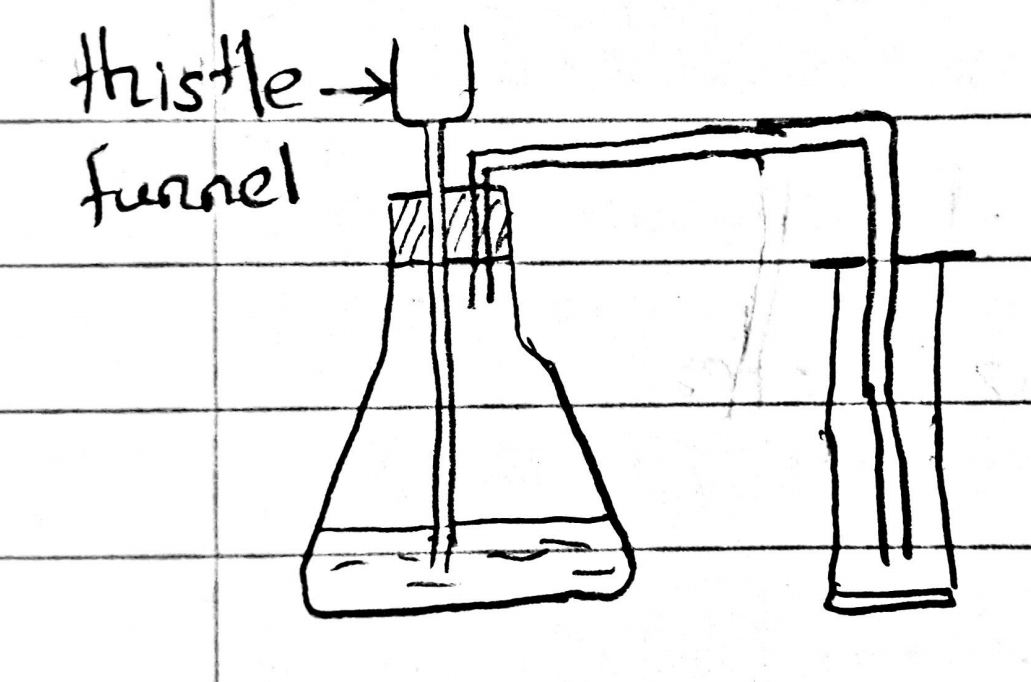 thistle
funnel